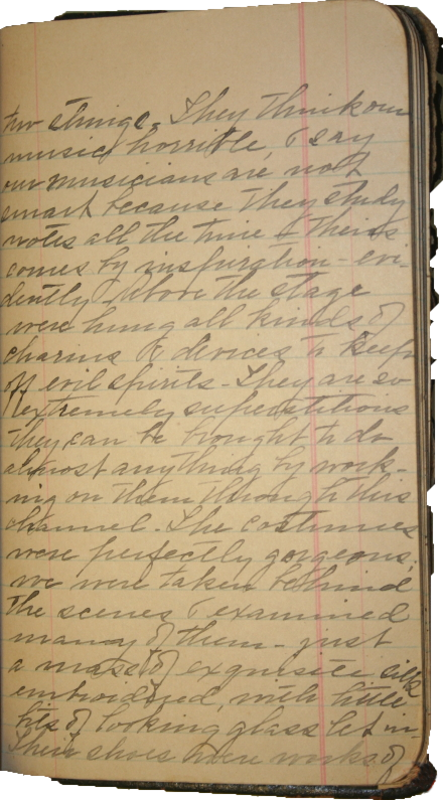 two strings. They think our
music horrible, & say
our musicians are not
smart because they study
notes all the time & theirs
comes by inspiration - evi-
dently. Above the stage
were hung all kinds of
charms & devices to keep
off evil spirits - They are so
extremely superstitious
they can be brought to do
almost anything by work-
ing on them through this
channel. The costumes
were perfectly gorgeous;
we were taken behind
the scenes & examined
many of them - just
a mass of exquisite silks
embroidered, with little
bits of looking glass let in.
Their shoes were works of